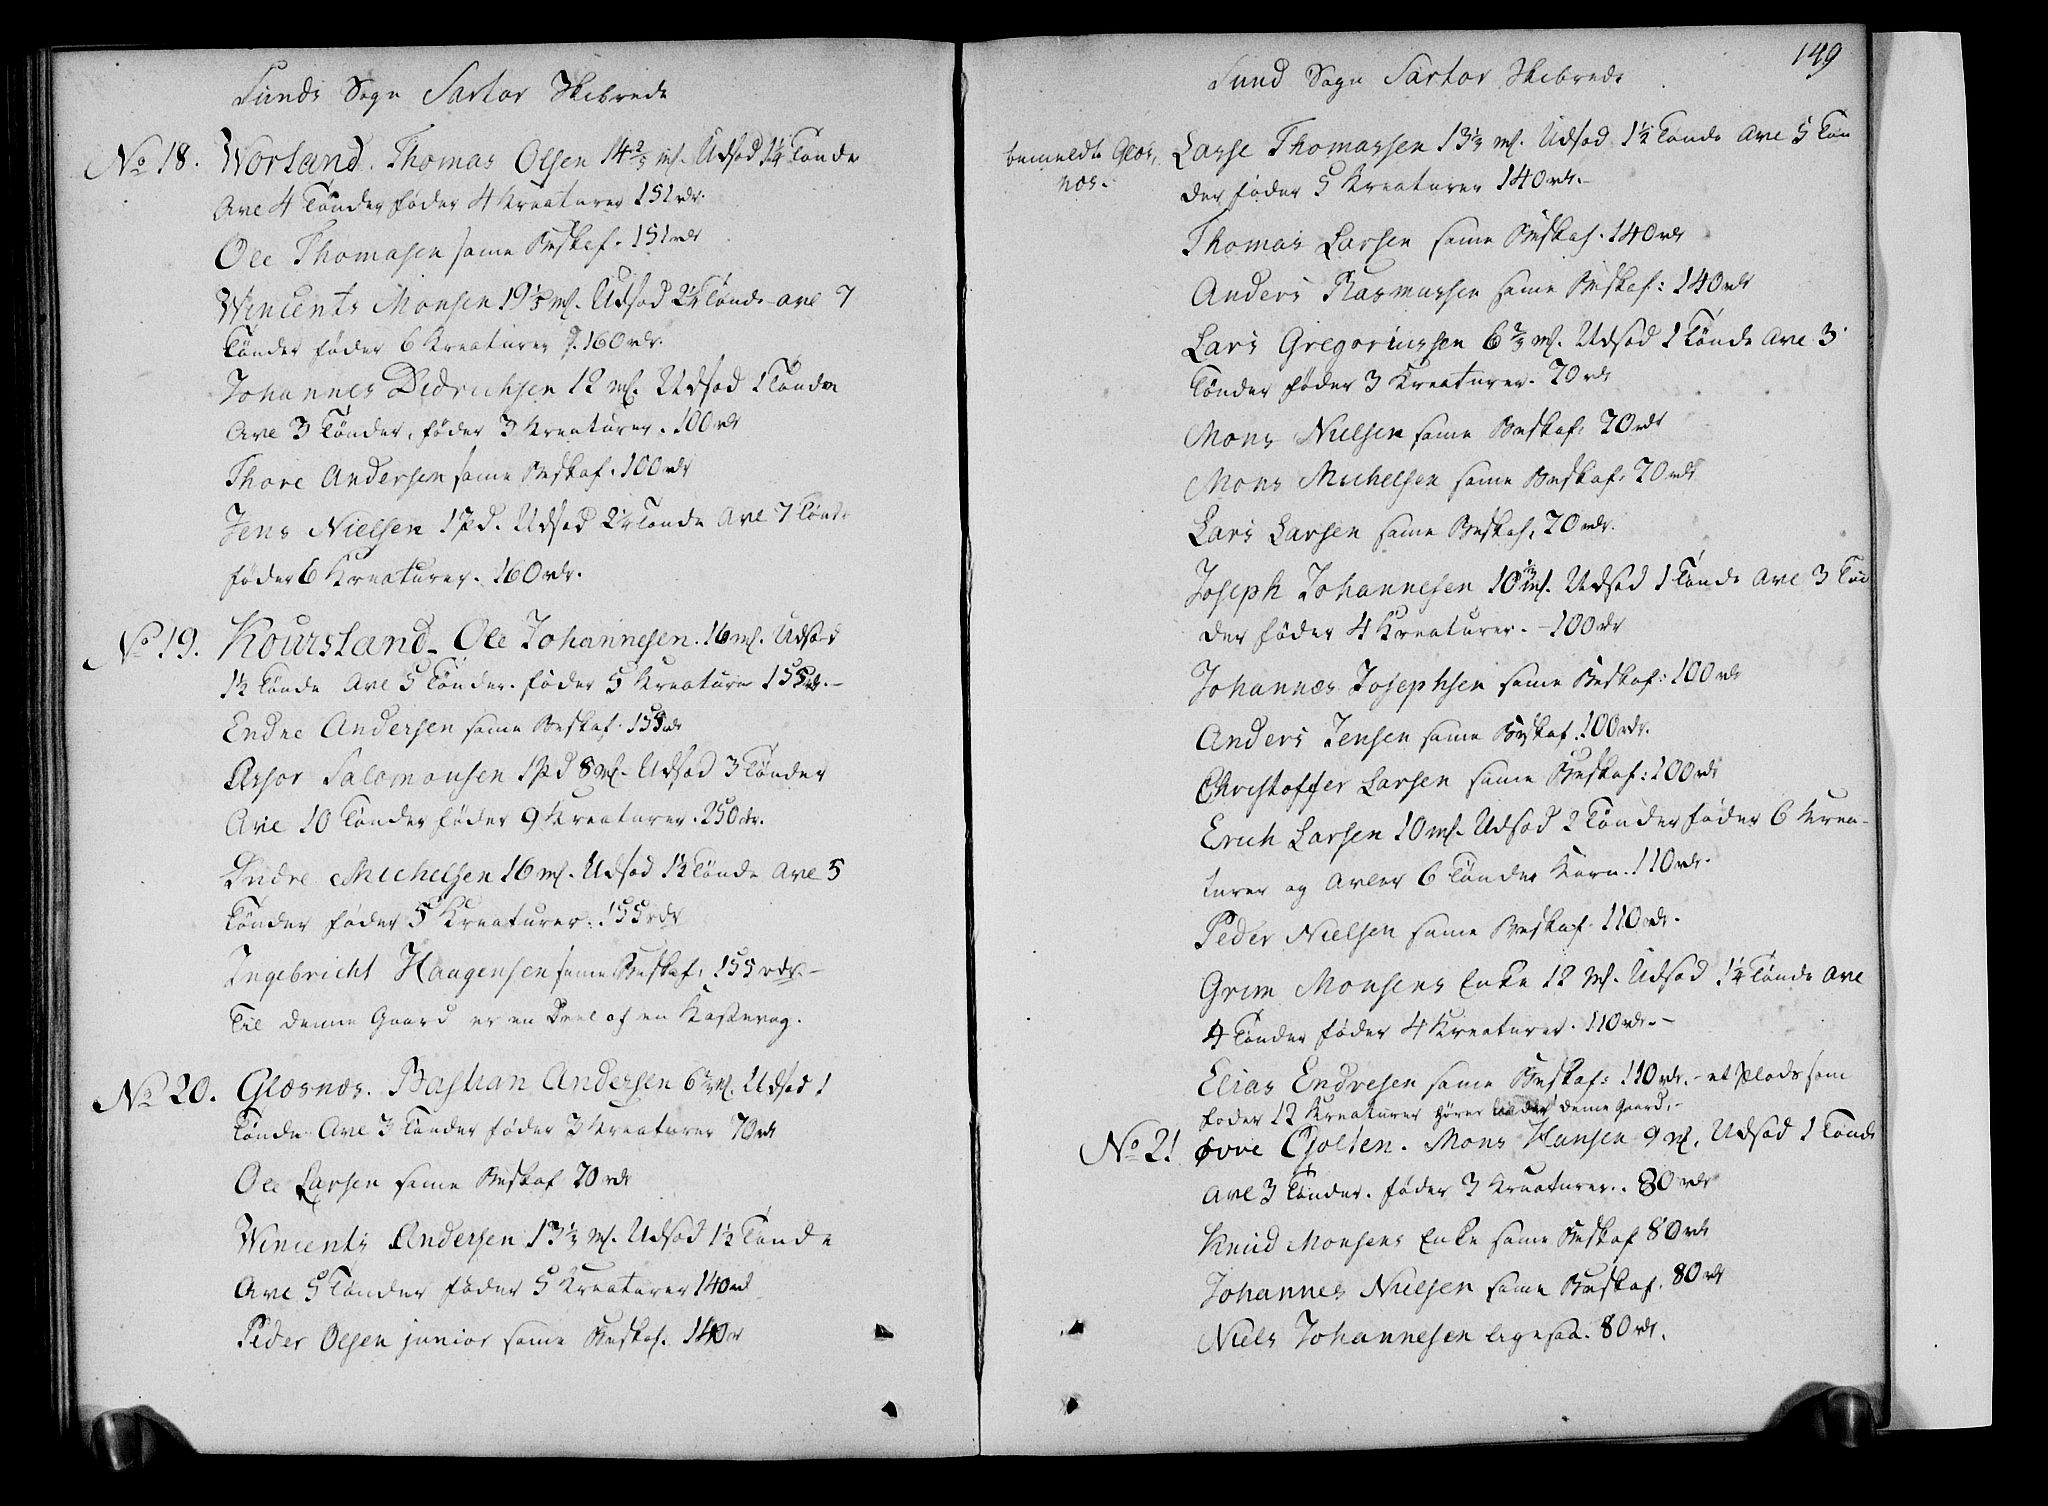 Sunds Sogn Sartor Skibrede
No 18. Worland. Thomas Olsen 14 2/5 mk. Udsæd 1 1/4 Tønde
Avl 4 Tønder føder 4 Kreaturer 151 rdr.
Ole Thomasen same Beskaf. 151 rdr
Wincents Monsen 19 1/5 mk. Udsæd 2 1/4 Tønde avl 7
Tønder føder 6 Kreaturer 160 rdr.
Johannes Didrichsen 12 mk. Udsæd 1 Tønde
Avl 3 Tønder, føder 3 Kreaturer. 100 rdr
Thore Andersen same Beskaf. 100 rdr
Jens Nielsen 1 pd. Udsæd 2 1/4 Tønde Avl 7 Tønd.
føder 6 Kreaturer. 160 rdr.
No 19. Koursland. Ole Johannesen. 16 mk. Udsæd
1 1/2 Tønde Avl 5 Tønder. føder 5 Kreaturer 155 rdr.-
Endre Andersen same Beskaf. 155 rdr
Assor Salomonsen 1 pd 8 mk. Udsæd 3 Tønder
Avl 10 Tønder føder 9 Kreaturer. 250 rdr.
Endre Michelsen 16 mk. Udsæd 1 1/2 Tønde Avl 5
Tønder føder 5 Kreaturer. 155 rdr
Ingebricht Haagensen same Beskaf. 155 rdr.-
Til denne Gaard er en Deel af en Kastevog.
No 20. Glæsnæs. Bastian Andersen 6 2/3 mk. Udsæd 1
Tønde Avl 3 Tønder føder 3 Kreaturer 70 rdr
Ole Larsen same Beskaf 70 rdr
Wincents Andersen 13 1/3 mk. Udsæd 1 1/2 Tønde
Avl 5 Tønder føder 5 Kreaturer 140 rd
Peder Olsen junior same Beskaf. 140 r
149
Sund Sogn Sartor Skibrede
bemeldte Glæs,
næs.
Lasse Thomassen 13 1/3 mk. Udsæd 1 1/2 Tønde Avl 5 Tøn
der føder 5 Kreaturer 140 rdr.-
Thomas Larsen same Beskaf. 140 rdr
Anders Rasmussen same Beskaf: 140 rdr
Lars Gregoriussen 6 2/3 mk. Udsæd 1 Tønde Avl 3
Tønder føder 3 Kreaturer. 70 rdr
Mons Nielsen same Beskaf. 70 rdr
Mons Michelsen same Beskaf. 70 rdr
Lars Larsen same Beskaf. 70 rdr.
Joseph Johannesen 10 mk. Udsæd 1 Tønde Avl 3 Tøn
der føder 4 Kreaturer. - 100 rdr
Johannes Josephsen same Beskaf: 100 rdr
Anders Jensen same Beskaf. 100 rdr.
Christoffer Larsen same Beskaf: 100 rdr
Erich Larsen 10 mk. Udsæd 2 Tønder føder 6 Krea-
turer og Avler 6 Tønder Korn. 110 rdr.
Peder Nielsen same Beskaf. 110 rdr.
Grim Monsens Enke 12 mk. Udsæd 1 1/4 Tønde Avl
4 Tønder føder 4 Kreaturer. 110 rdr.-
Elias Endresen same Beskaf: 110 rdr.- et Plads som
føder 12 Kreaturer hører under denne Gaard.-
No 21 Øvre Golten. Mons Hansen 9 mk. Udsæd 1 Tønde
Avl 3 Tønder. føder 3 Kreaturer. 80 rdr
Knud Monsens Enke same Beskaf 80 rdr
Johannes Nielsen same Beskaf. 80 rdr
Niels Johannesen ligesaa. 80 rdr.